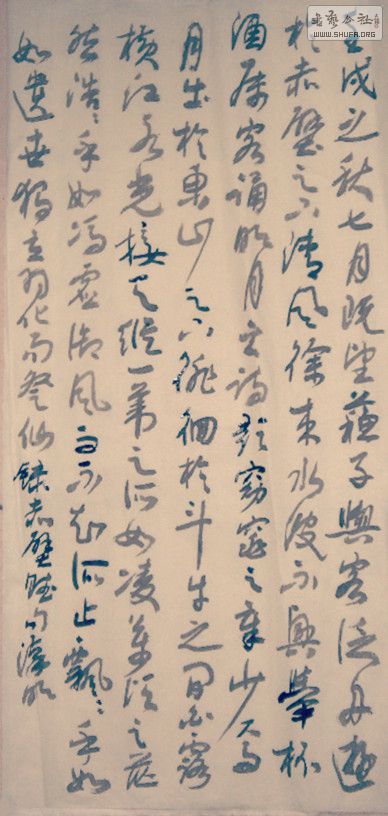 书艺公社
WWW.SHUFA.ORG
壬戌之秋七月既望蘇子與客泛舟遊
於赤壁之下清風徐来水波不興舉杯
酒屬客誦明月之詩歌窈窕之章少焉
月出於東山之下徘徊於斗牛之間白露
橫江水光接天縱一葦之所如凌萬頃之茫
然浩〻乎如馮虛御風而不知所止飄〻乎如
如遺世獨立羽化而登仙錄赤壁賦句